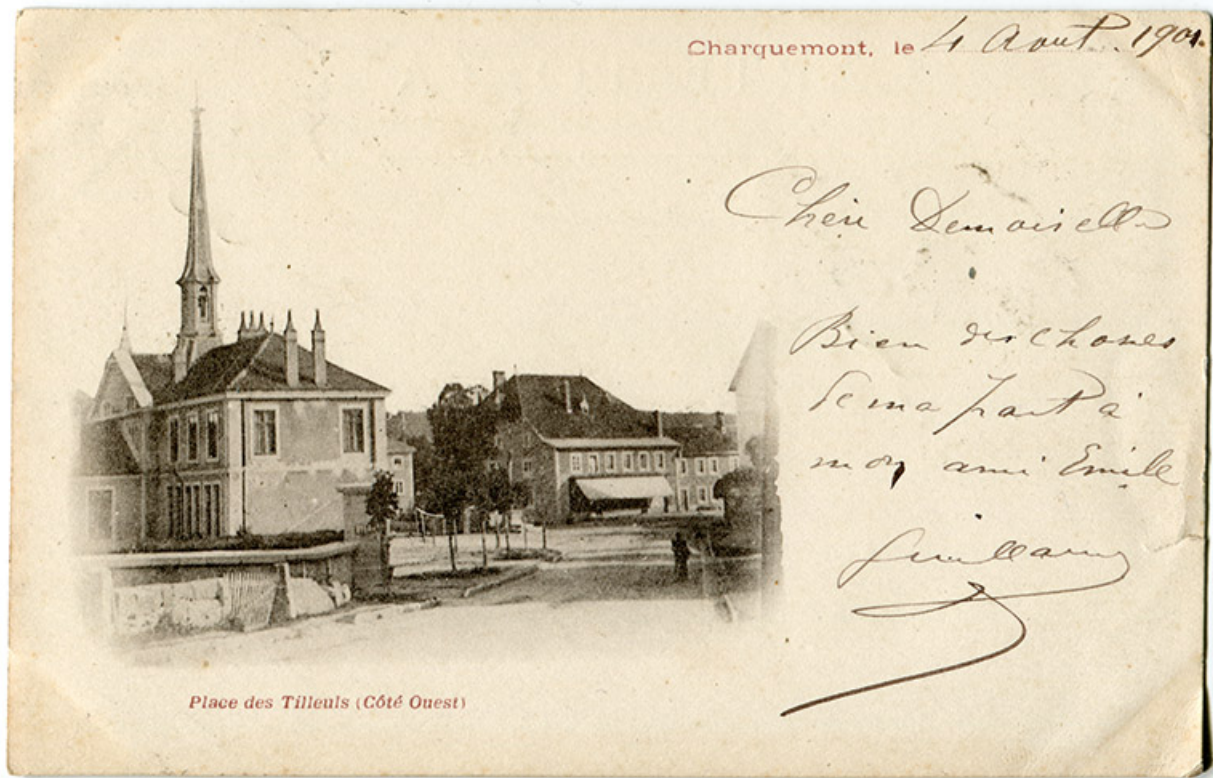 Charquemont, le 4 Aout 1901.
Chère Demoiselle
Bien des choses
de ma part à
mon ami Emile
Guillaume
Place des Tilleuls (Côté Ouest)